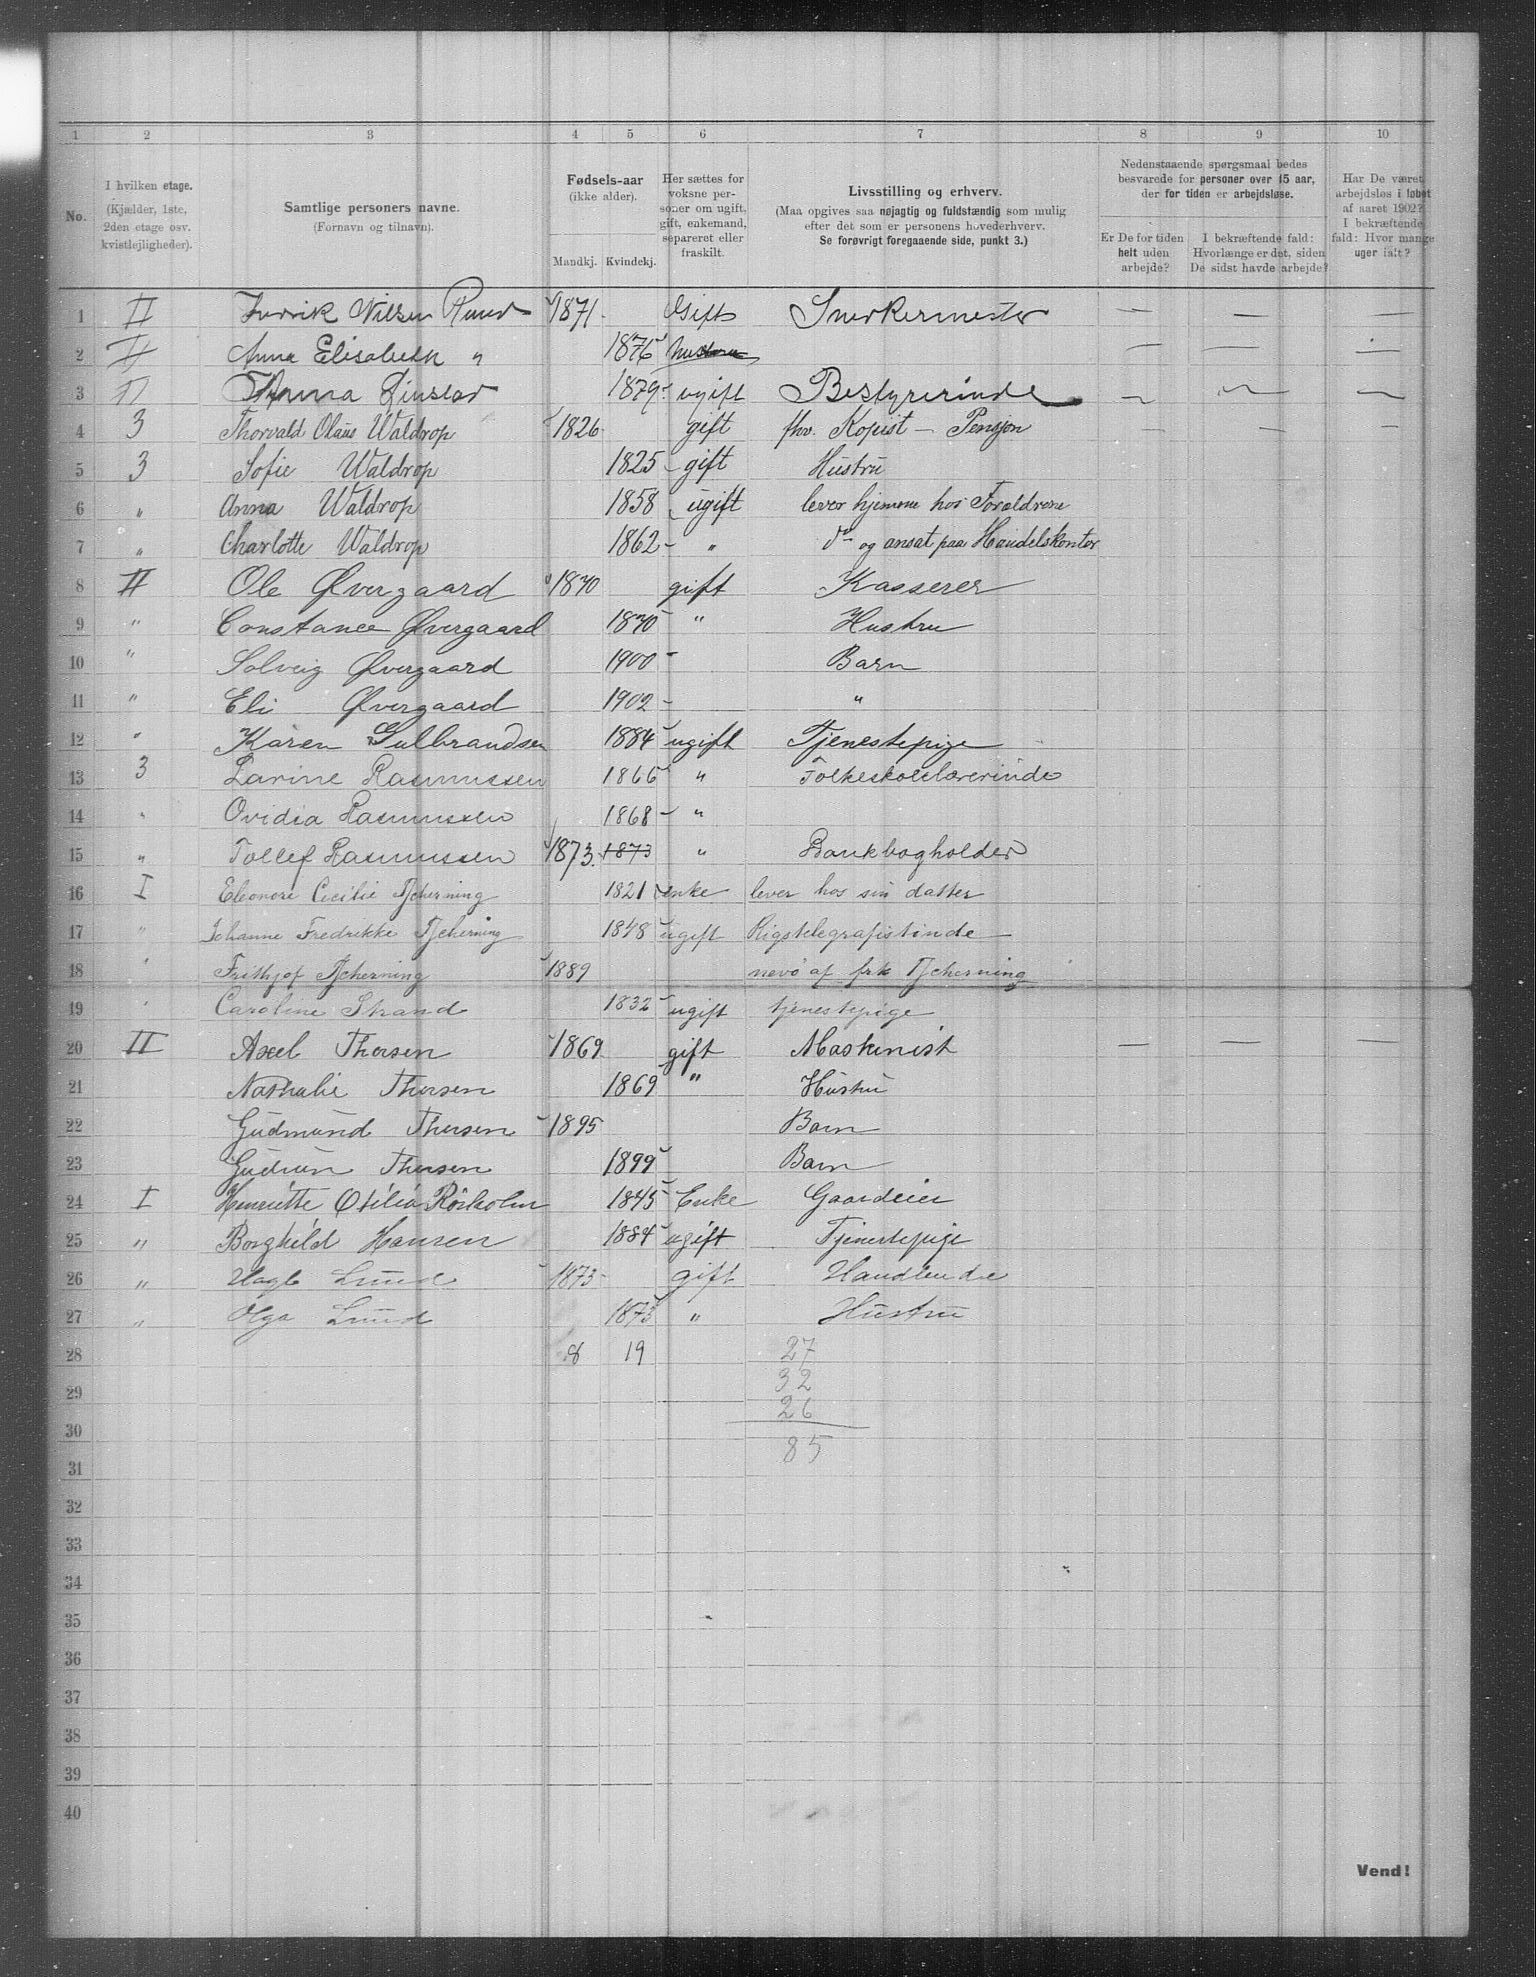 1 2 3 4 5 6 7 8 9 10
No.
I hvilken etage.
(Kjælder, 1ste,
2den etage osv.
kvistlejligheder).
Samtlige personers navne.
(Fornavn og tilnavn).
Fødsels-aar
(ikke alder).
Mandkj. Kvindekj.
Her sættes for
voksne per-
soner om ugift,
gift, enkemand,
separeret eller
fraskilt.
Livsstilling og erhverv.
(Maa opgives saa nøjagtig og fuldstændig som mulig
efter det som er personens hovederhverv.
Se forøvrigt foregaaende side, punkt 3.)
Nedenstaaende spørgsmaal bedes
besvarede for personer over 15 aar,
der for tiden er arbejdsløse.
Er De for tiden
helt uden
arbejde?
I bekræftende fald:
Hvorlænge er det, siden
De sidst havde arbejde?
Har De været
arbejdsløs i løbet
af aaret 1902?
I bekræftende
fald: Hvor mange
uger ialt?
1 II Nilsen Ruud 1871 Gift Snerkermester — — —
2 II Anna Elisabeth " 1876 hustru — — —
3 II Anna 1879 ugift Bestyrerinde — — —
4 3 Thorvald Olaus Waldrop 1826 gift fhv. Kopist — Pensjon — — —
5 3 Sofie Waldrop 1825 gift Hustru
6 " Anna Waldrop 1858 ugift lever hjemme hos Forældrene
7 " Charlotte Waldrop 1862 " do og ansat paa Handelskontor
8 II Ole Øvergaard 1870 gift Kasserer
9 " Constance Øvergaard 1870 " Hustru
10 " Solveig Øvergaard 1900 - Barn
11 " Eli Øvergaard 1902 - "
12 " Karen Gulbrandsen 1884 ugift Tjenestepige
13 3 Larine Rasmussen 1866 " Folkeskolelærerinde
14 " Ovidia Rasmussen 1868 "
15 " Tollef Rasmussen 1873. 1873 " Bankbogholder
16 I Eleonore Cecilie Tjcherning 1821 enke lever hos sin datter
17 " Johanne Fredrikke Tjcherning 1848 ugift Rigstelegrafistinde
18 " Frithjof Tjcherning 1889 nevø af frk Tjcherning
19 " Caroline Strand 1832 ugift tjenestepige
20 II Axel Thorsen 1869 gift Maskinist — — —
21 Nathalie Thorsen 1869 " Hustru
22 Gudmund Thorsen 1895 Barn
23 Gudrun Thorsen 1899 Barn
24 I Henriette Otilia Rösholm 1845 Enke Gaardeier
25 " Borghild Hansen 1884 ugift Tjenestepige
26 " Lund 1873 gift Handlende
27 " Olga Lund 1873 " Hustru
28 8 19 27
29 32
26
30 85
31
32
33
34
35
36
37
38
39
40
Vend!